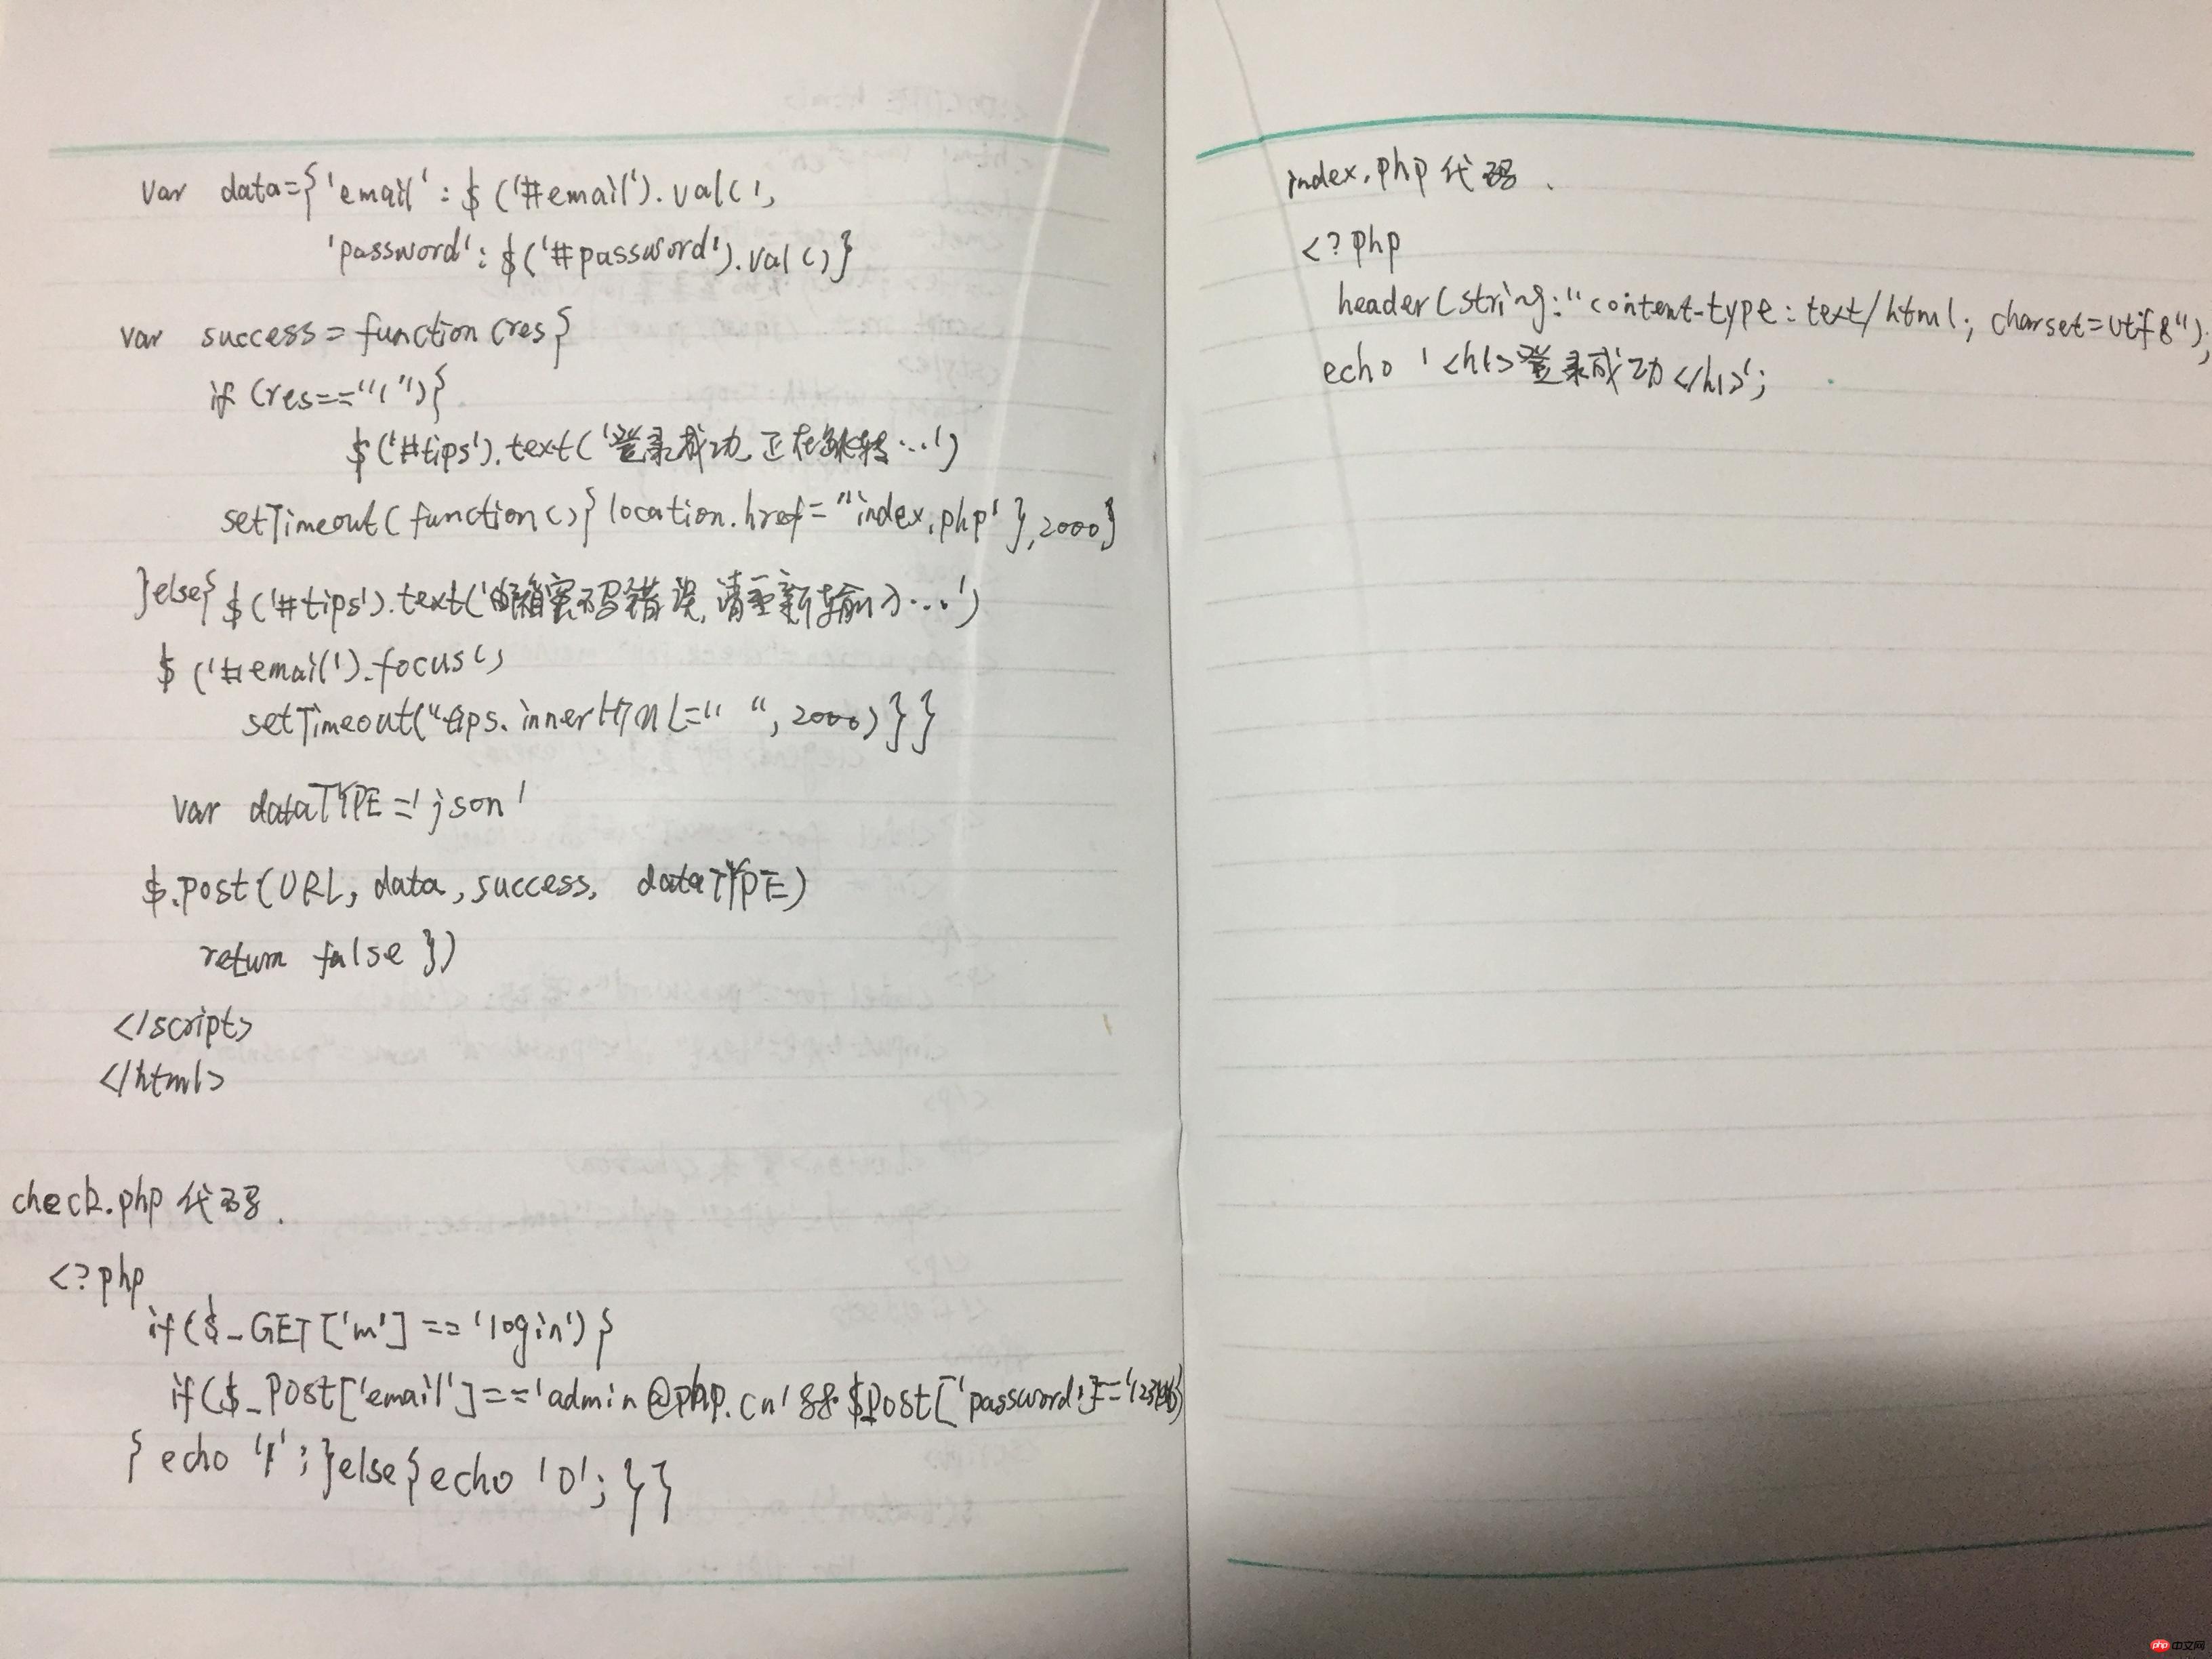 var data={'email':$('#email').val(),
'password':$('#password').val()}
var success=function(res{
if(res=="1"){
$('#tips').text('登录成功,正在跳转...')
setTimeout(function(){location.href="index.php'},2000}
}else{$('#tips').text('邮箱密码错误,请重新输入...')
$('#email').focus()
setTimeout("tips.innerHTML=" ",2000)}}
var dataTYPE='json'
$.post(URL,data,success,dataTYPE)
return false})
</script>
</html>
check.php代码.
<?php
if($_GET['m']=='login'){
if($_POST['email']=='admin@php.cn'&&$_POST['password']=='123456')
{echo '1';}else{echo '0';}}
index.php代码.
<?php
header(string:"content-type:text/html; charset=utf8");
echo '<h1>登录成功</h1>';
php 中文网